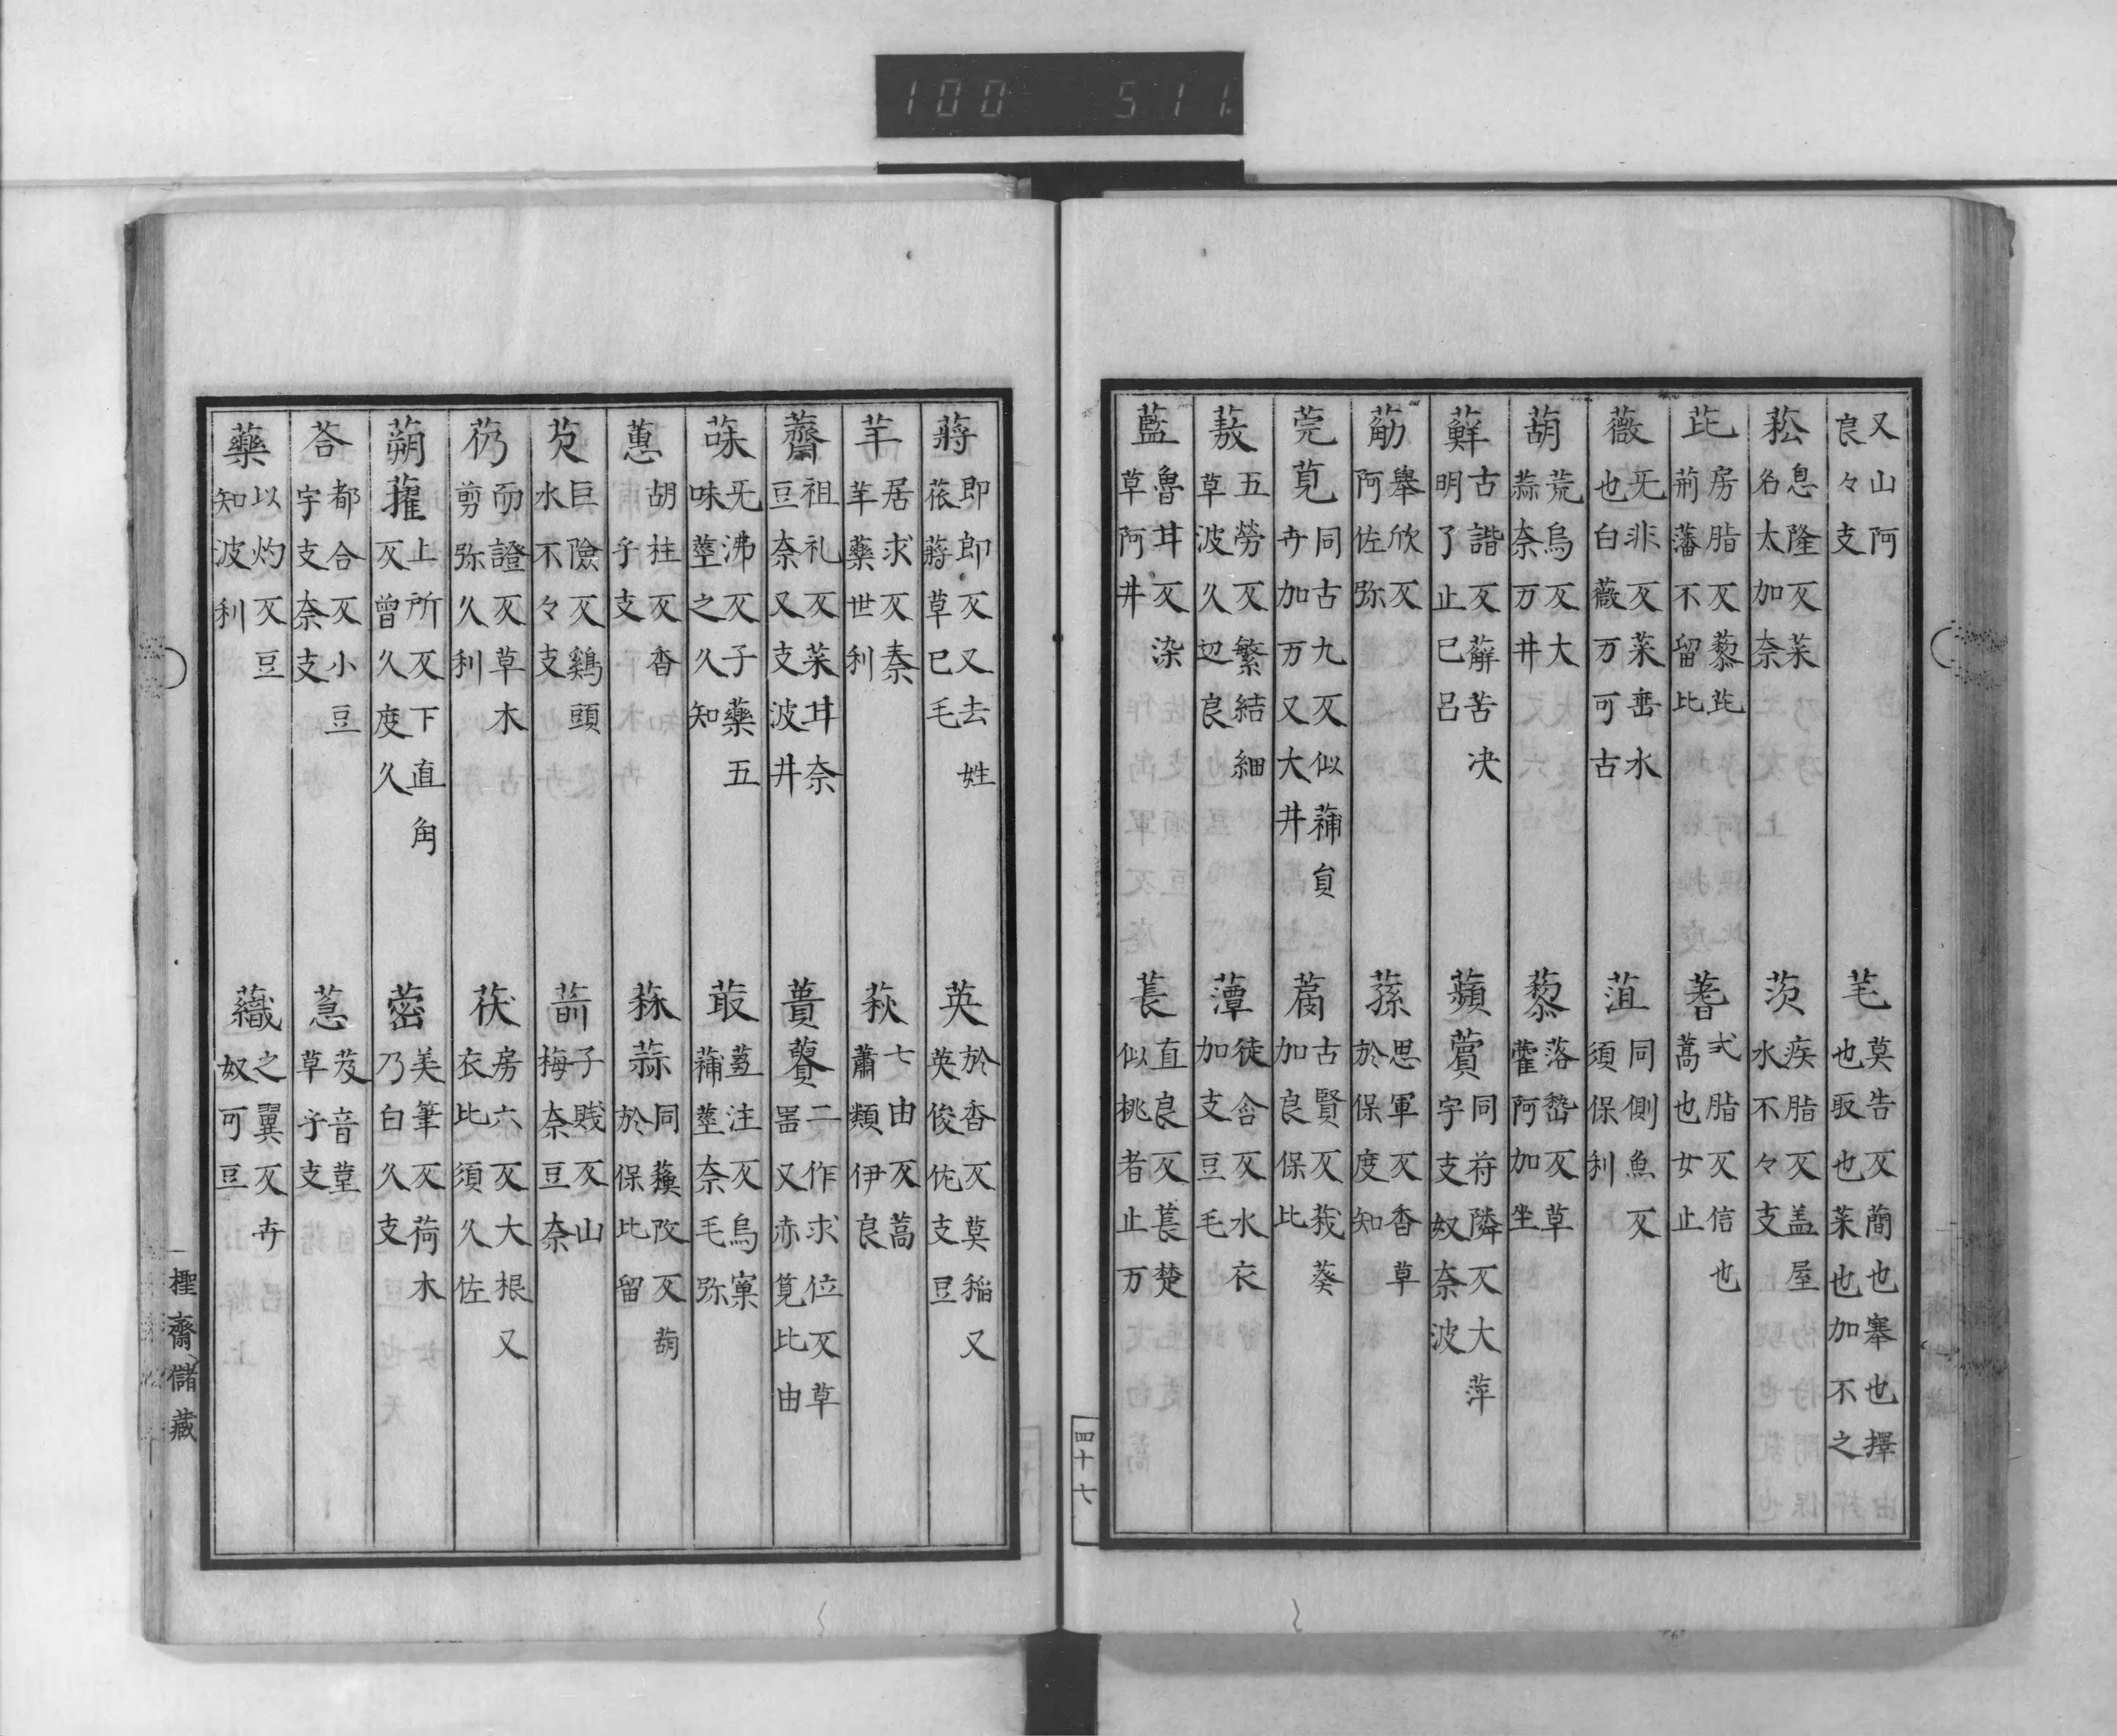 100 511
又山阿良々支
芼 莫告反蕳也搴也擇也取也菜也加不之
菘 息隆反菜名太加奈
茨 疾脂反盖屋水不々支
芘 房脂反藜芘荊藩不留比
蓍 式脂反信也蒿也女止
薇 旡非反菜垂水也白薇万可古
菹 同側魚反須保利
葫 荒烏反大蒜奈万井
藜 落嵆反草藿阿加坐
蘚 古諧反薢苦决明了止已呂
蘋薲 同苻隣反大萍宇支奴奈波
䈥 舉欣反阿佐弥
蓀 思軍反香草於保度知
莞莧 同古九反似蒲負卉加万又大井
菺 古賢反茙葵加良保比
蔜 五勞反繁結細草波久辺良
藫 徒含反水衣加支豆毛
藍 魯甘反染草阿井
萇 直良反萇楚似桃者止万
四十七
蔣 即郎反又去姓菰蔣草已毛
英 於香反莫稲又英俊佐支豆
芉 居求反秦芉藥世利
萩 七由反蒿蕭類伊良
薺 祖礼反菜甘奈豆奈又支波井
蕢䕚 二作求位反草噐又赤筧比由
菋 旡沸反子藥五味莖之久知
菆 葢注反烏窠蒲莖奈毛弥
蔥 胡桂反香子支
菻蒜 同蘓改反葫於保比留
芡 巨險反鷄頭水不々支
葥 子賤反山梅奈豆奈
芿 而證反草木剪弥久利
茯 房六反大根又衣比須久佐
蒴藋 上所反下直角反曽久度久
蔤 美筆反荷木乃白久支
荅 都合反小豆宇支奈支
蒠 芨音堇草子支
藥 以灼反豆知波利
蘵 之翼反卉奴可豆
檉齋儲藏